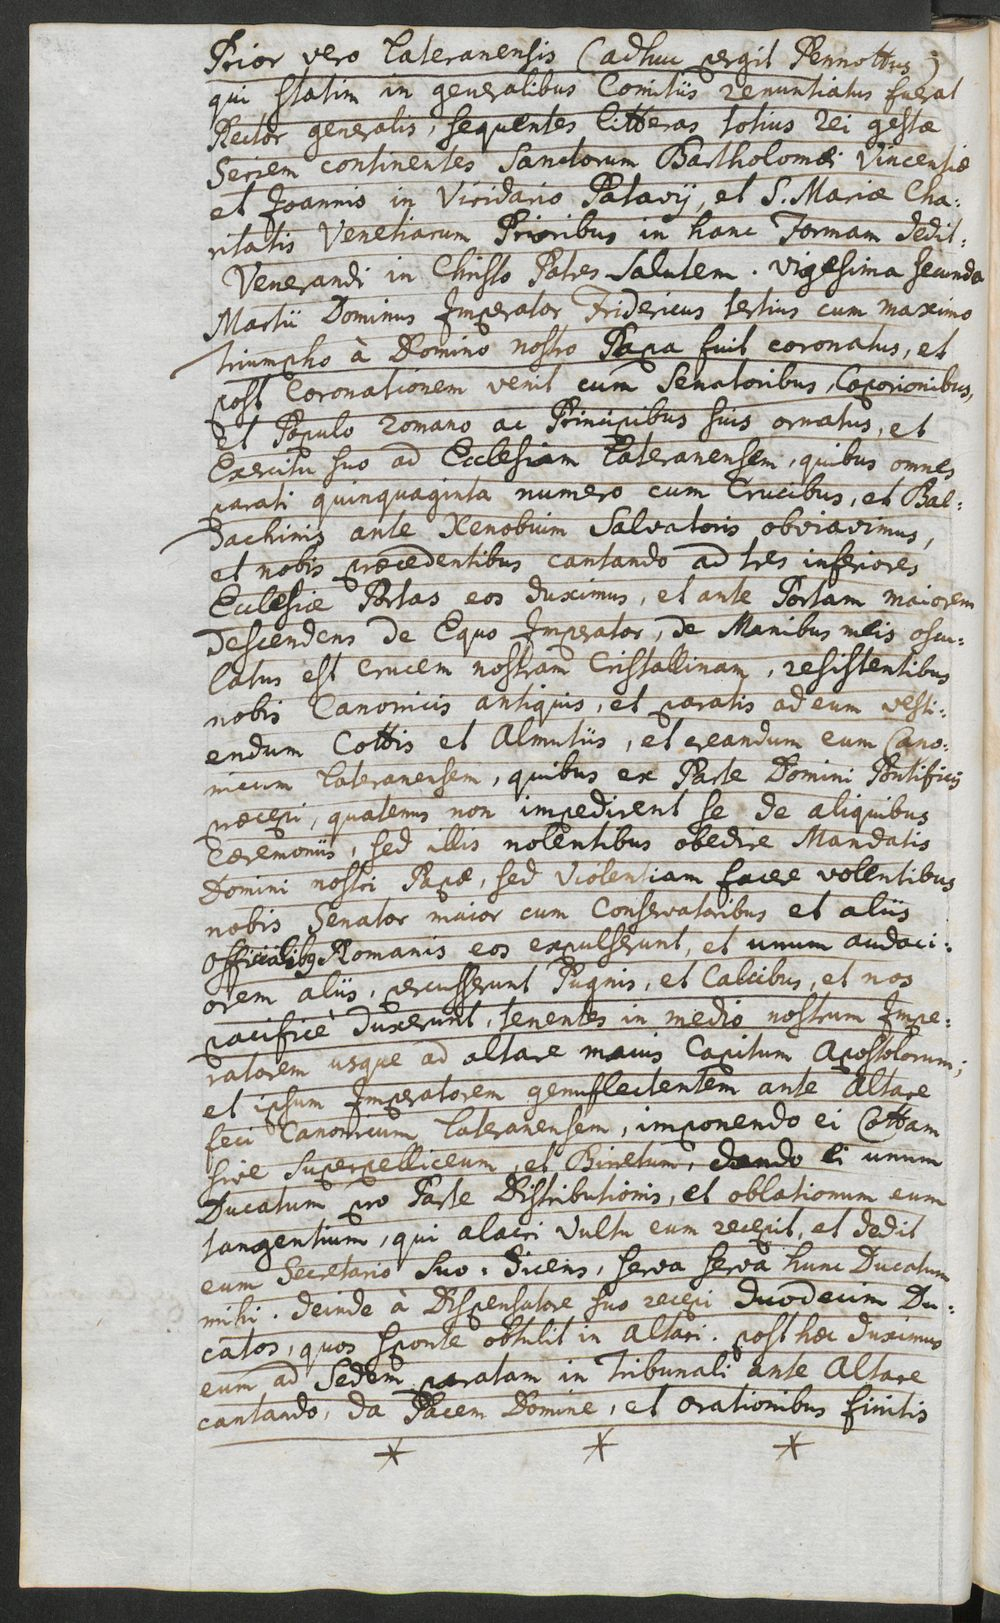 Prior vero Lateranensis (adhuc pergit Pennottus)
qui statim in generalibus Comitiis renuntiatus fuerat
Rector generalis, sequentes litteras totius rei gestæ
Seriem continentes Sanctorum Bartholomæi Vincentiæ
et Joannis in Viridario Patavij, et S. Mariæ Cha:
ritatis Venetiarum Prioribus in hanc Formam dedit:
Venerandi in Christo Patres Salutem. Vigesima secunda
Martii Dominus Imperator Fridericus tertius cum maximo
triumpho à Domino nostro Papa fuit coronatus, et
post Coronationem venit cum Senatoribus, Caporionibus,
et Populo Romano ac Principibus suis ornatus, et
Exercitu suo ad Ecclesiam Lateranensem, quibus omnes
parati quinquaginta numero cum Crucibus, et Bal:
dachinis ante Xenobium Salvatoris obviavimus,
et nobis præcedentibus cantando ad tres inferiores
Ecclesiæ Portas eos duximus, et ante Portam maiorem
descendens de Equo Imperator, de Manibus meis oscu:
latus est Crucem nostram Cristallinam, resistentibus
nobis Canonicis antiquis, et paratis ad eum vesti:
endum Cottis et Almutiis, et creandum eum Cano:
nicum Lateranensem, quibus ex Parte Domini Pontificis
præcepi, quatenus non impedirent se de aliquibus
Cæremoniis, sed illis nolentibus obedire Mandatis
Domini nostri Papæ, sed Violentiam facere volentibus
nobis Senator maior cum Conservatoribus et aliis
Officialibq Romanis eos expulserunt, et unum audaci:
orem aliis, percusserunt Pugnis, et Calcibus, et nos
pacificè duxerunt, tenentes in medio nostrum Impe:
ratorem usque ad altare maius Capitum Apostolorum;
et ipsum Imperatorem genuflectentem ante Altare
feci Canonicum Lateranensem, imponendo ei Cottam
sive Superpelliceum, et Biretum, dando ei unum
Ducatum pro Parte Distributionis, et oblationum eum
tangentium, qui alacri Vultu eum recepit, et dedit
eum Secretario suo, dicens, serva serva hunc Ducatum
mihi. deinde à Dispensatore suo recepi duodecim Du:
catos, quos sponte obtulit in Altari. post hæc duximus
eum ad Sedem paratam in Tribunali ante Altare
cantando, da Pacem Domine, et orationibus finitis
* * *